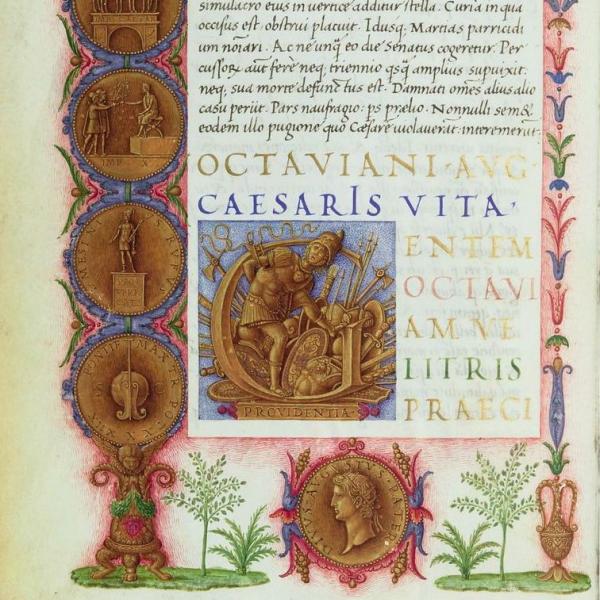 simulacro eius in vertice additur stella. Curia in qua
occisus est. obstrui placuit. Idusq. Martias parricidi
um nōiari. Ac ne unq̄ eo die senatus cogeretur. Per
cussoꝝ autē ferè neq, triennio q̄sq̄ amplius supuixit.
neq, sua morte defunctus est. Damnati om̄es alius alio
casu periit. Pars naufragio. ps prelio. Nonnulli semet
eodem illo pugione quo Caesarē uiolauerāt. interemerūt.
OCTAVIANI · AVG
CAESARIS VITA ·
G
ENTEM
OCTAVI
AM VE
LITRIS
PRAECI
PROVIDENTIA
IMP · X
PONTIF MAX TR POT XX
DIVVS AVGVSTVS PATER